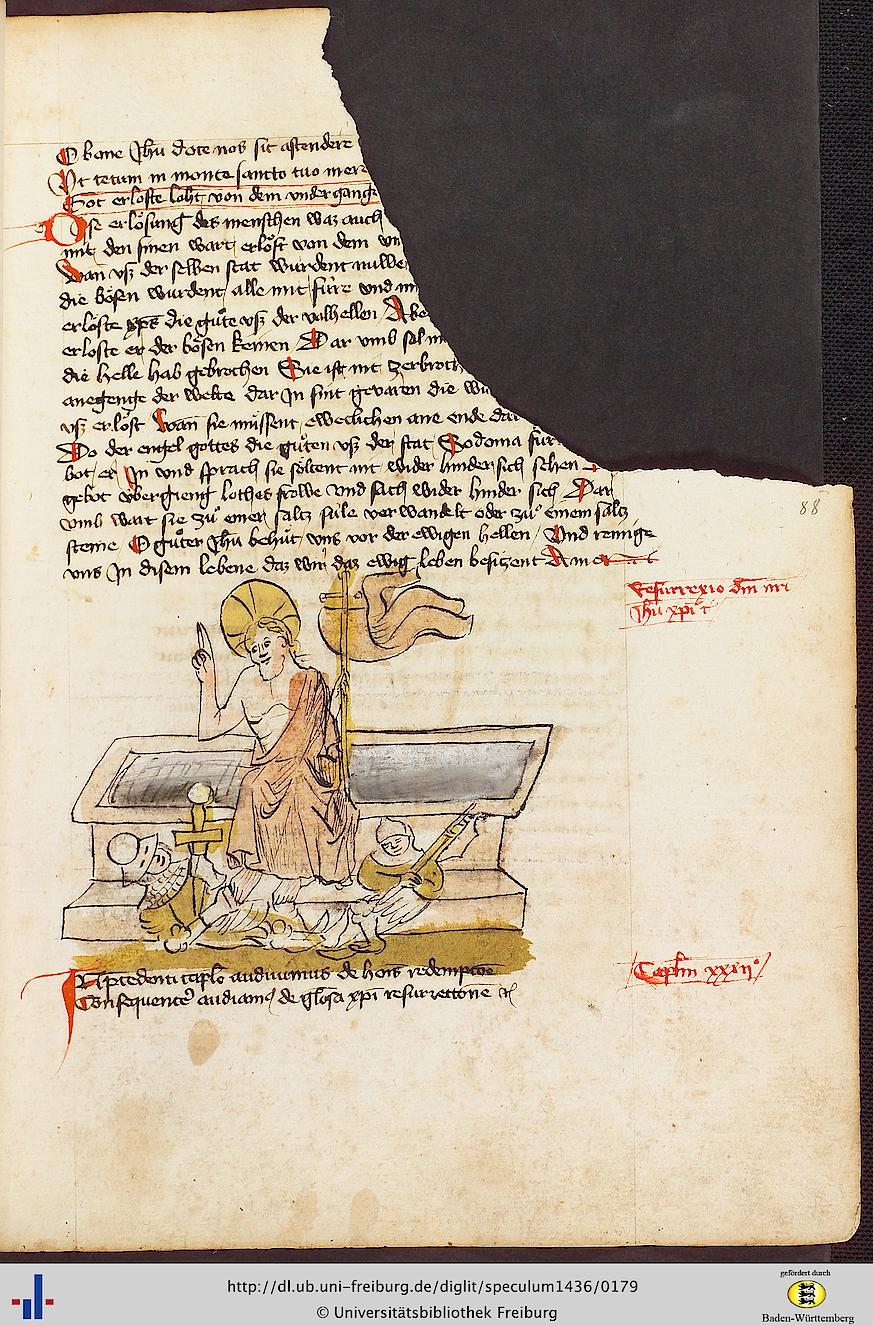 O bone Jhu doce nos sic ascendere
Ut tecum in monte sancto tuo
Got erloste loht von dem vndergang
Dise erlösung des menschen waz auch
mit den sinen wart erlöst von dem
Wan vß der selben stat wurdent
die bösen wurdent alle mit füre vnd
erlöste xps die güte vß der vorhellen Abe
erloste er der bösen keinen Dar vmb sal
die helle hab gebrochen Sie ist nit zerbroch
anegenge der welte dar Jn sint gevaren die
vß erlöst Wan sie müssent eweclichen ane ende dar
Do der engel gottes die güten vß der stat Sodoma für
bot er Jn vnd sprach sie söltent nit wider hinder sich sehen
gebot vbergieng lothes frowe vnd sach wider hinder sich Dar
vmb wart sie zů einer saltz sule verwandelt oder zů einem saltz
steine O gůter Jhu behüt vns vor der ewigen hellen Vnd reinige
vns Jn disem lebene daz wir daz ewig leben besitzent Amen
88
Resurrexio dni nri
Jhu xpi
Caplm xxxii
In precedenti caplo audiuimus de hois redempcoe
Consequenter audiamus de glosa xpi resurrectione
http://dl.ub.uni-freiburg.de/diglit/speculum1436/0179
© Universitätsbibliothek Freiburg
gefördert durch
Baden-Württemberg